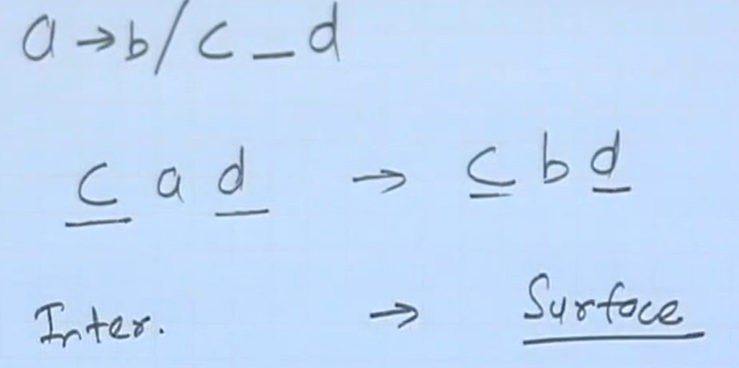 a → b / c _ d
c a d → c b d
Inter. → Surface